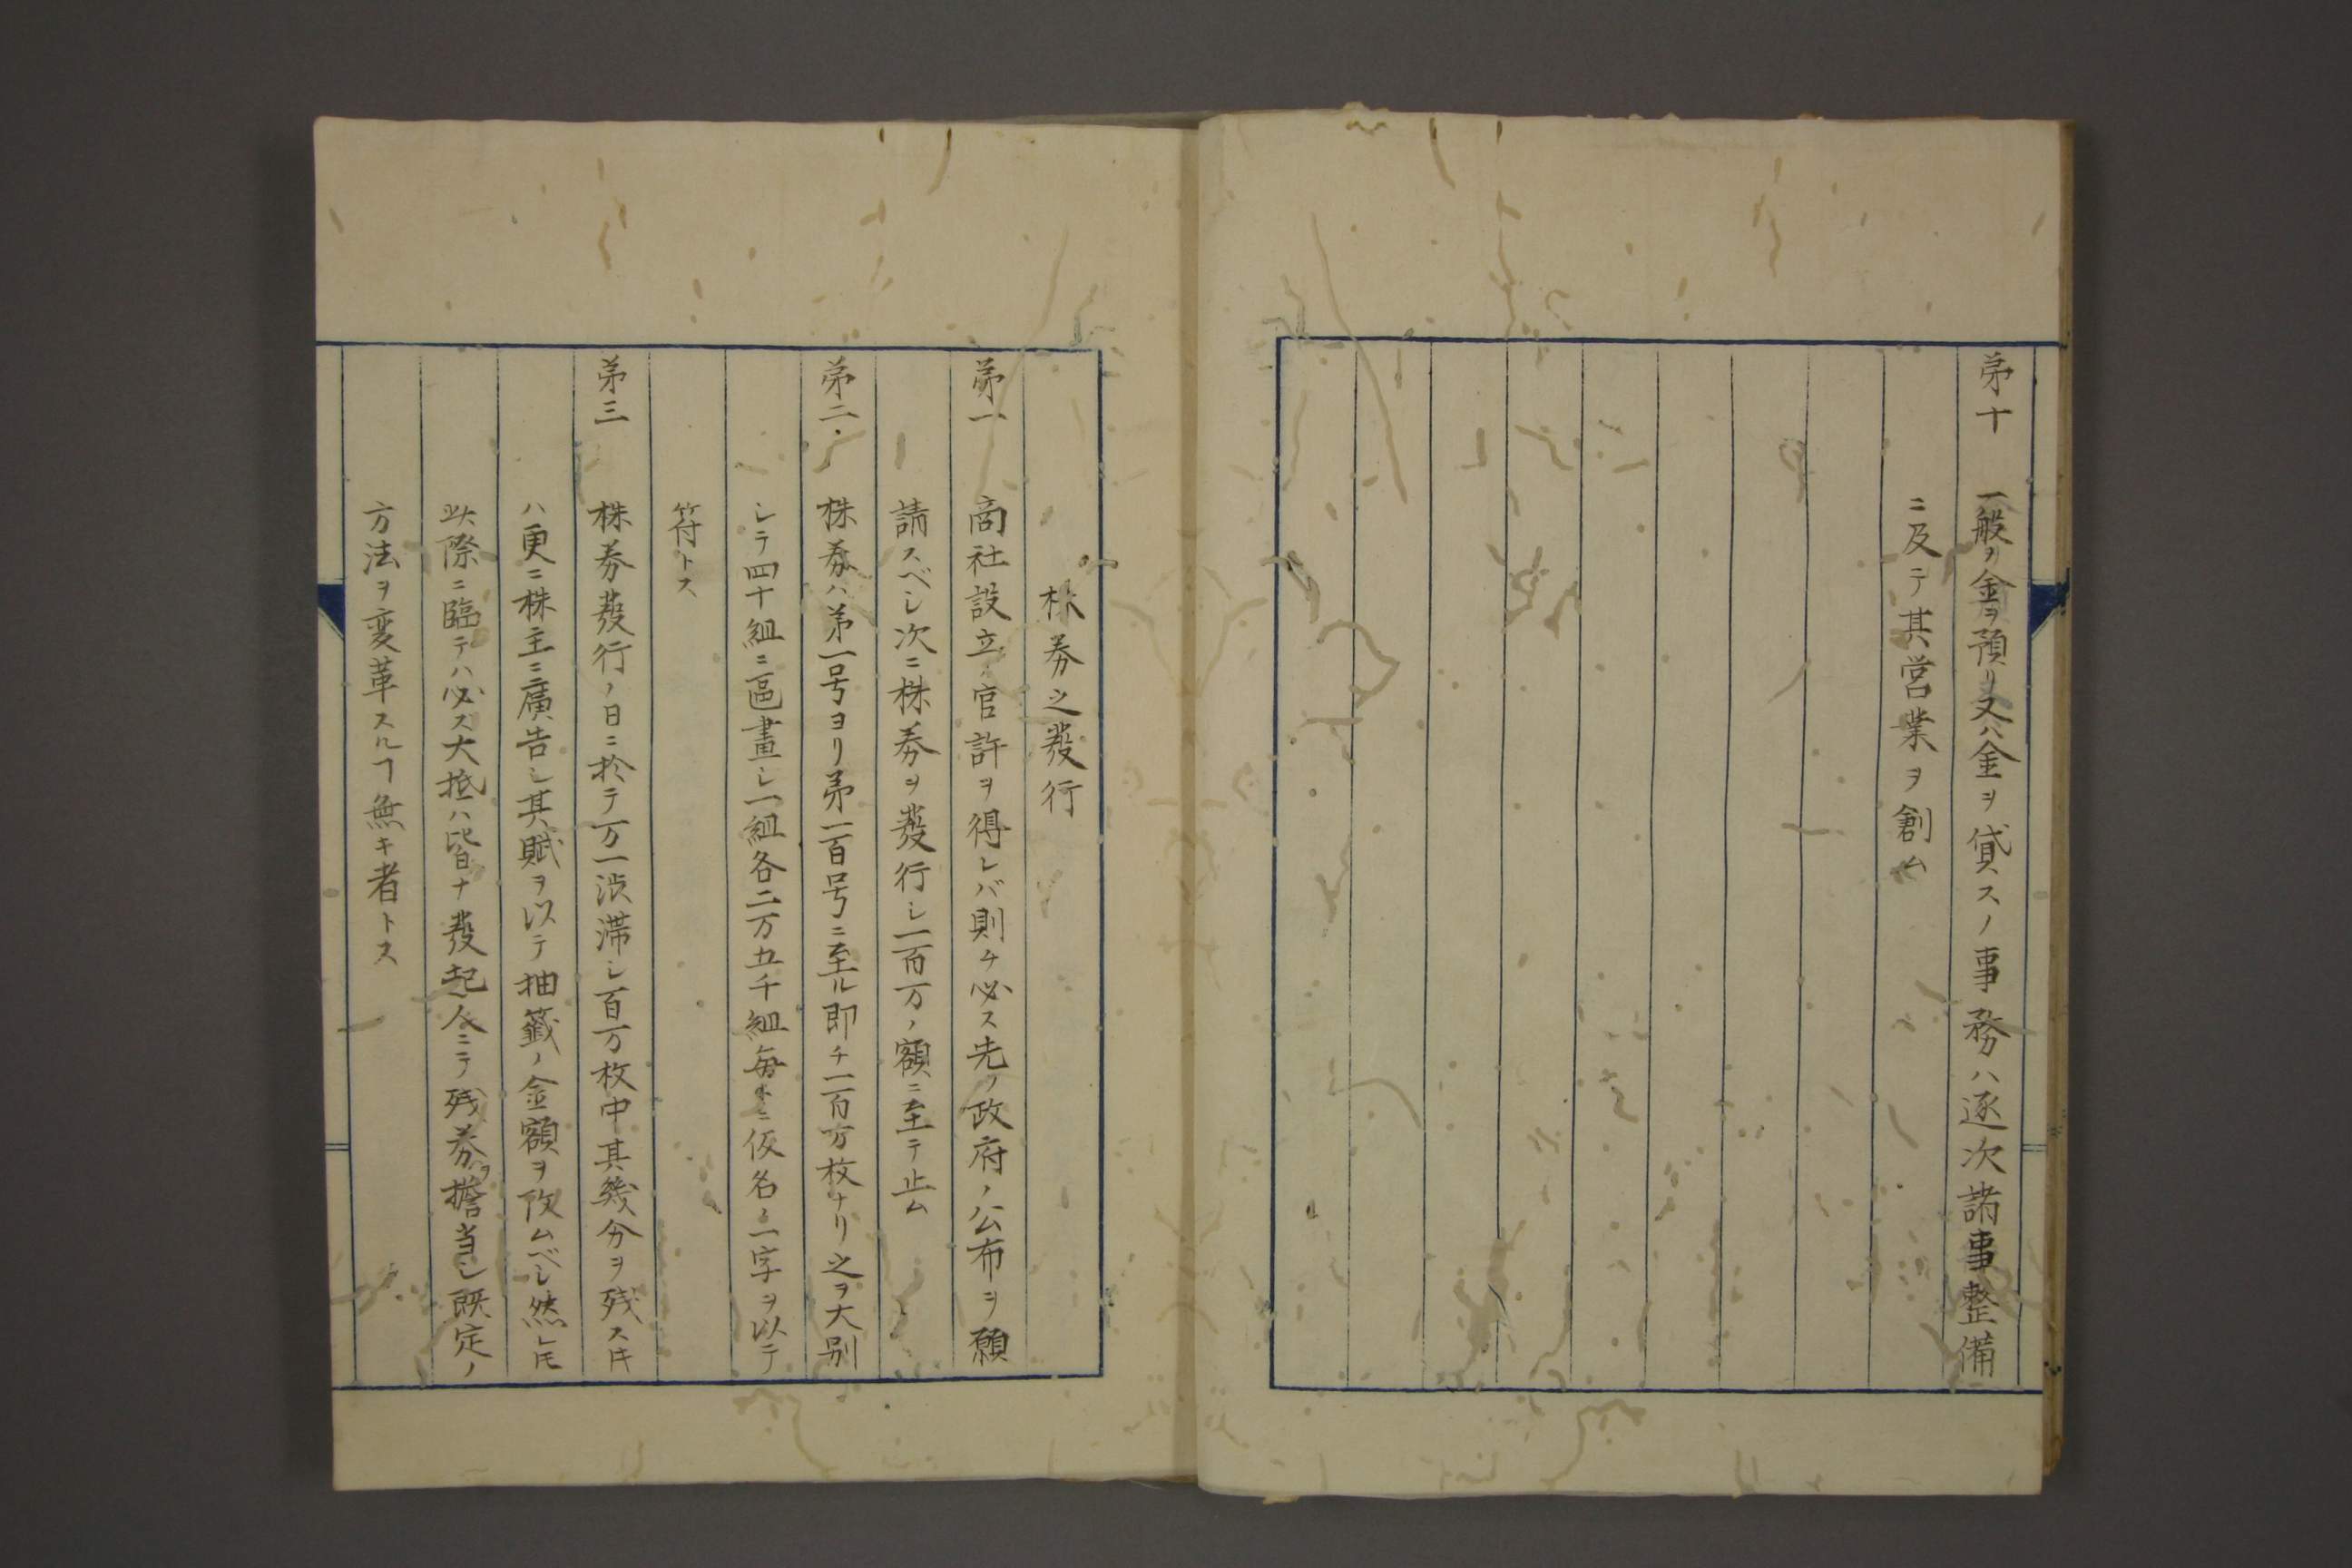 第十 一般ヲ金ヲ預リ又ハ金ヲ貸スノ事務ハ逐次諸事整備
ニ及テ其営業ヲ創ム
株券之發行
第一 商社設立ノ官許ヲ得レバ則チ必ス先ツ政府ノ公布ヲ願
請スベシ次ニ株券ヲ發行シ一百万ノ額ニ至テ止ム
第二 株券ハ第一号ヨリ第一百号ニ至ル即チ一百万枚ナリ之ヲ大別
シテ四十組ニ區畫シ一組各二万五千組毎ニ仮名ノ一字ヲ以テ
符トス
第三 株券發行ノ日ニ於テ万一渋滞シ百万枚中其幾分ヲ残ス𪜈
ハ更ニ株主ニ廣告シ其賦ヲ以テ抽籤ノ金額ヲ改ムベシ然レ𪜈
此際ニ臨テハ必ス大抵ハ皆ナ發起人ニテ残券ヲ擔当シ既定ノ
方法ヲ変革スルヿ無キ者トス